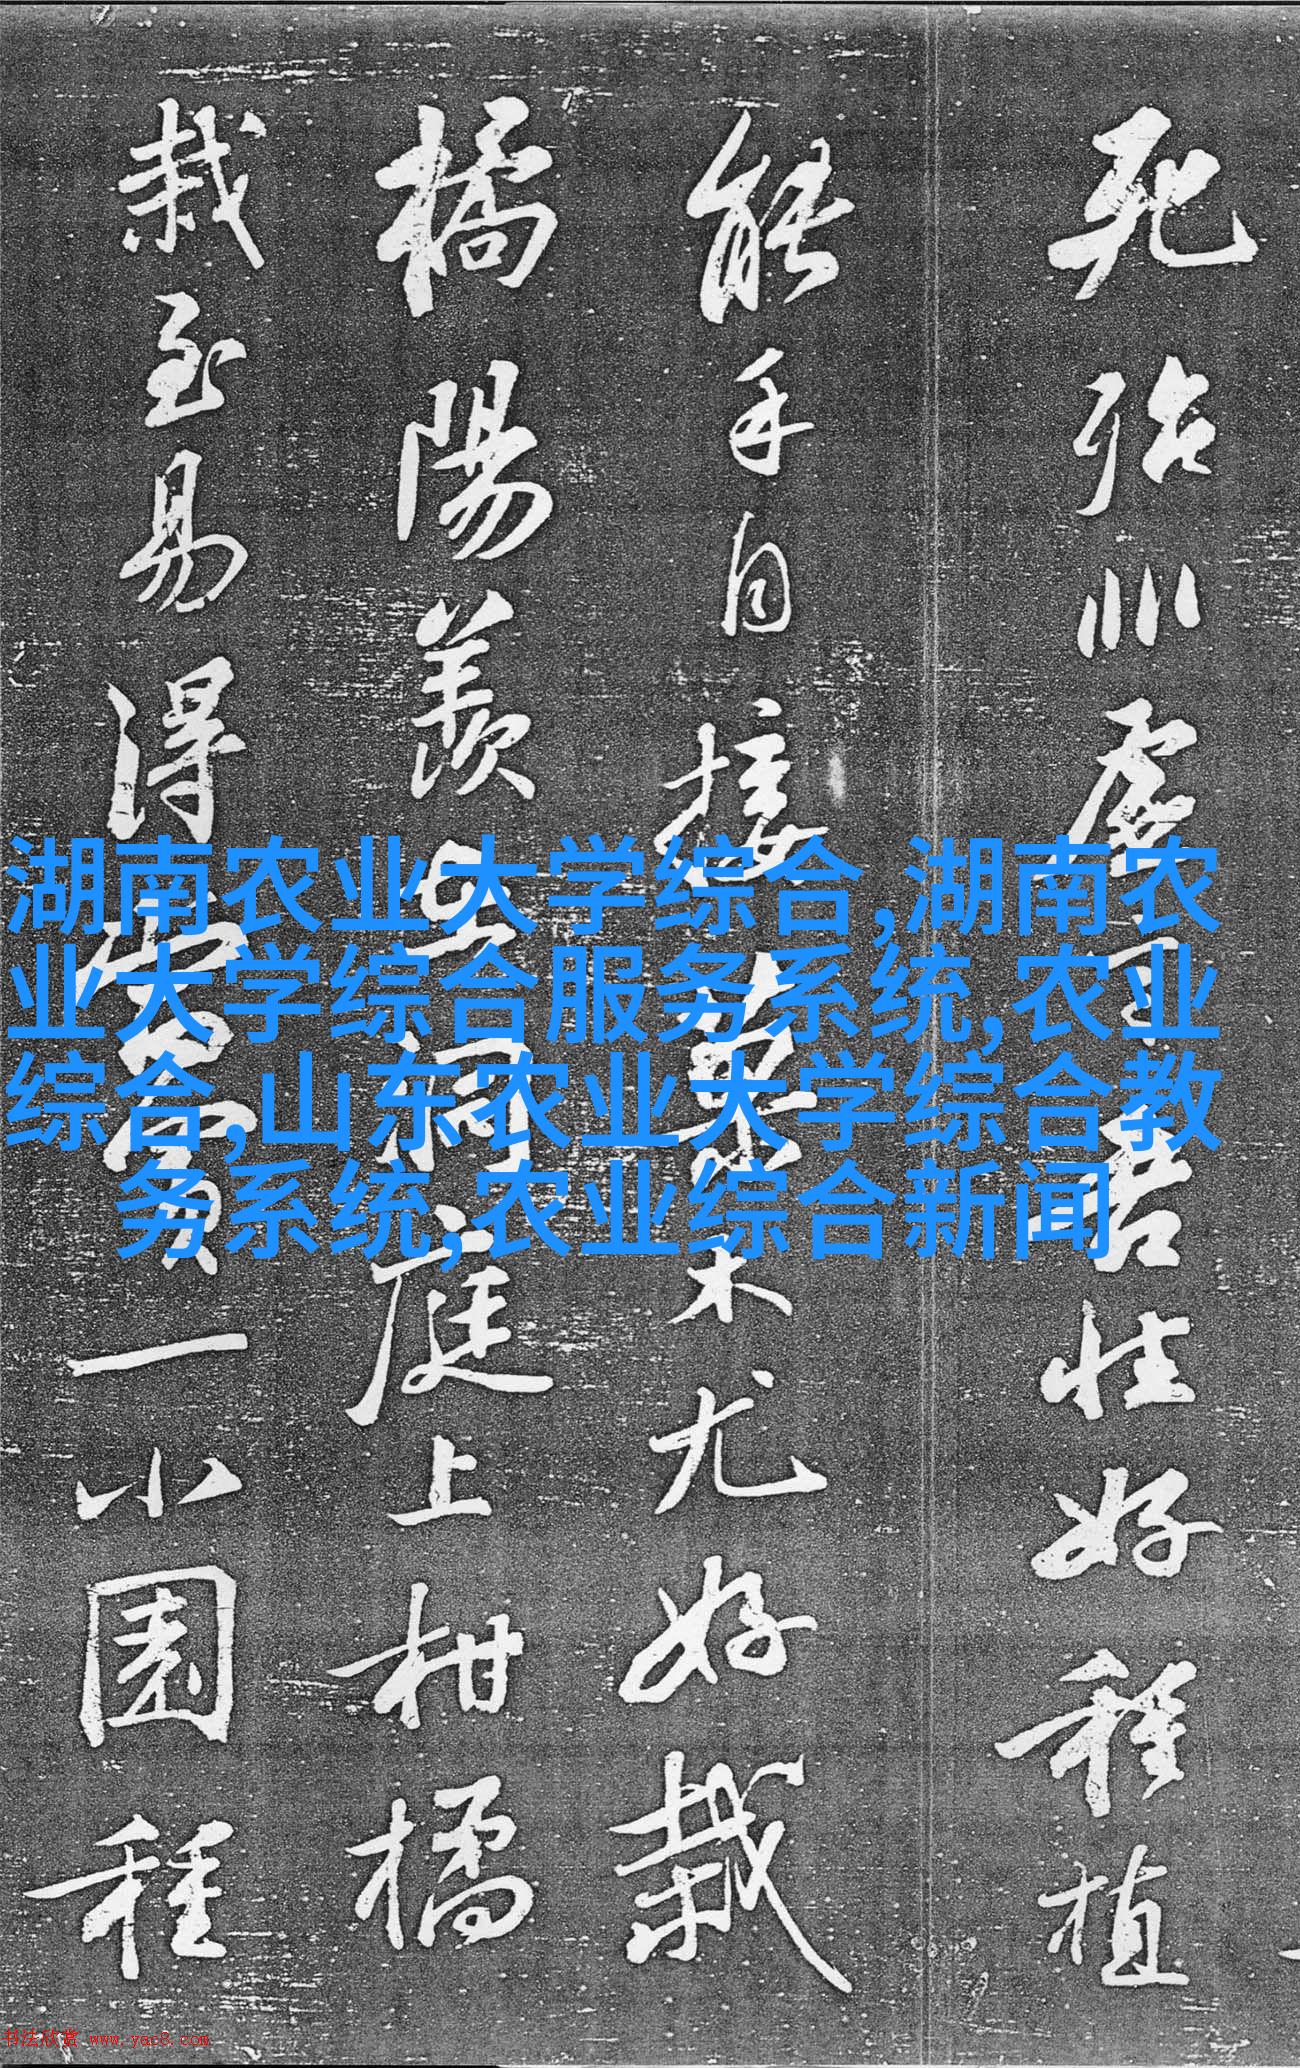 死殆非虛言吾性好種植
能手自接菓木尤好栽
橘陽羨在洞庭上柑橘
栽至易得當買一小園種
湖南农业大学综合,湖南农
业大学综合服务系统,农业
综合,山东农业大学综合教
务系统,农业综合新闻
书法欣赏 www.yac8.com